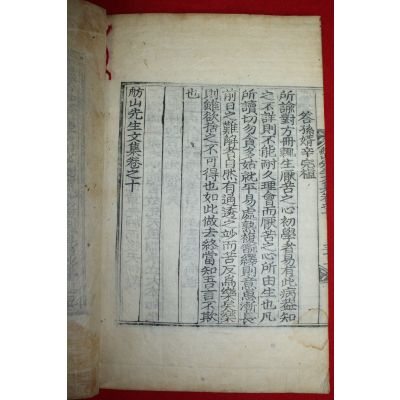 答孫婿辛宗檼
所諭對方冊輒生厭苦之心初學者易有此病盖知
之不詳則不能耐久理會而厭苦之心所由生也凡
所讀切勿貪多姑就平易處熟複尋繹則意思漸長
前日之難解者自然有過透之妙而苦反爲樂矣樂
則雖欲捨之不可得也如此做去終當知吾言不欺
也
舫山先生文集卷之十